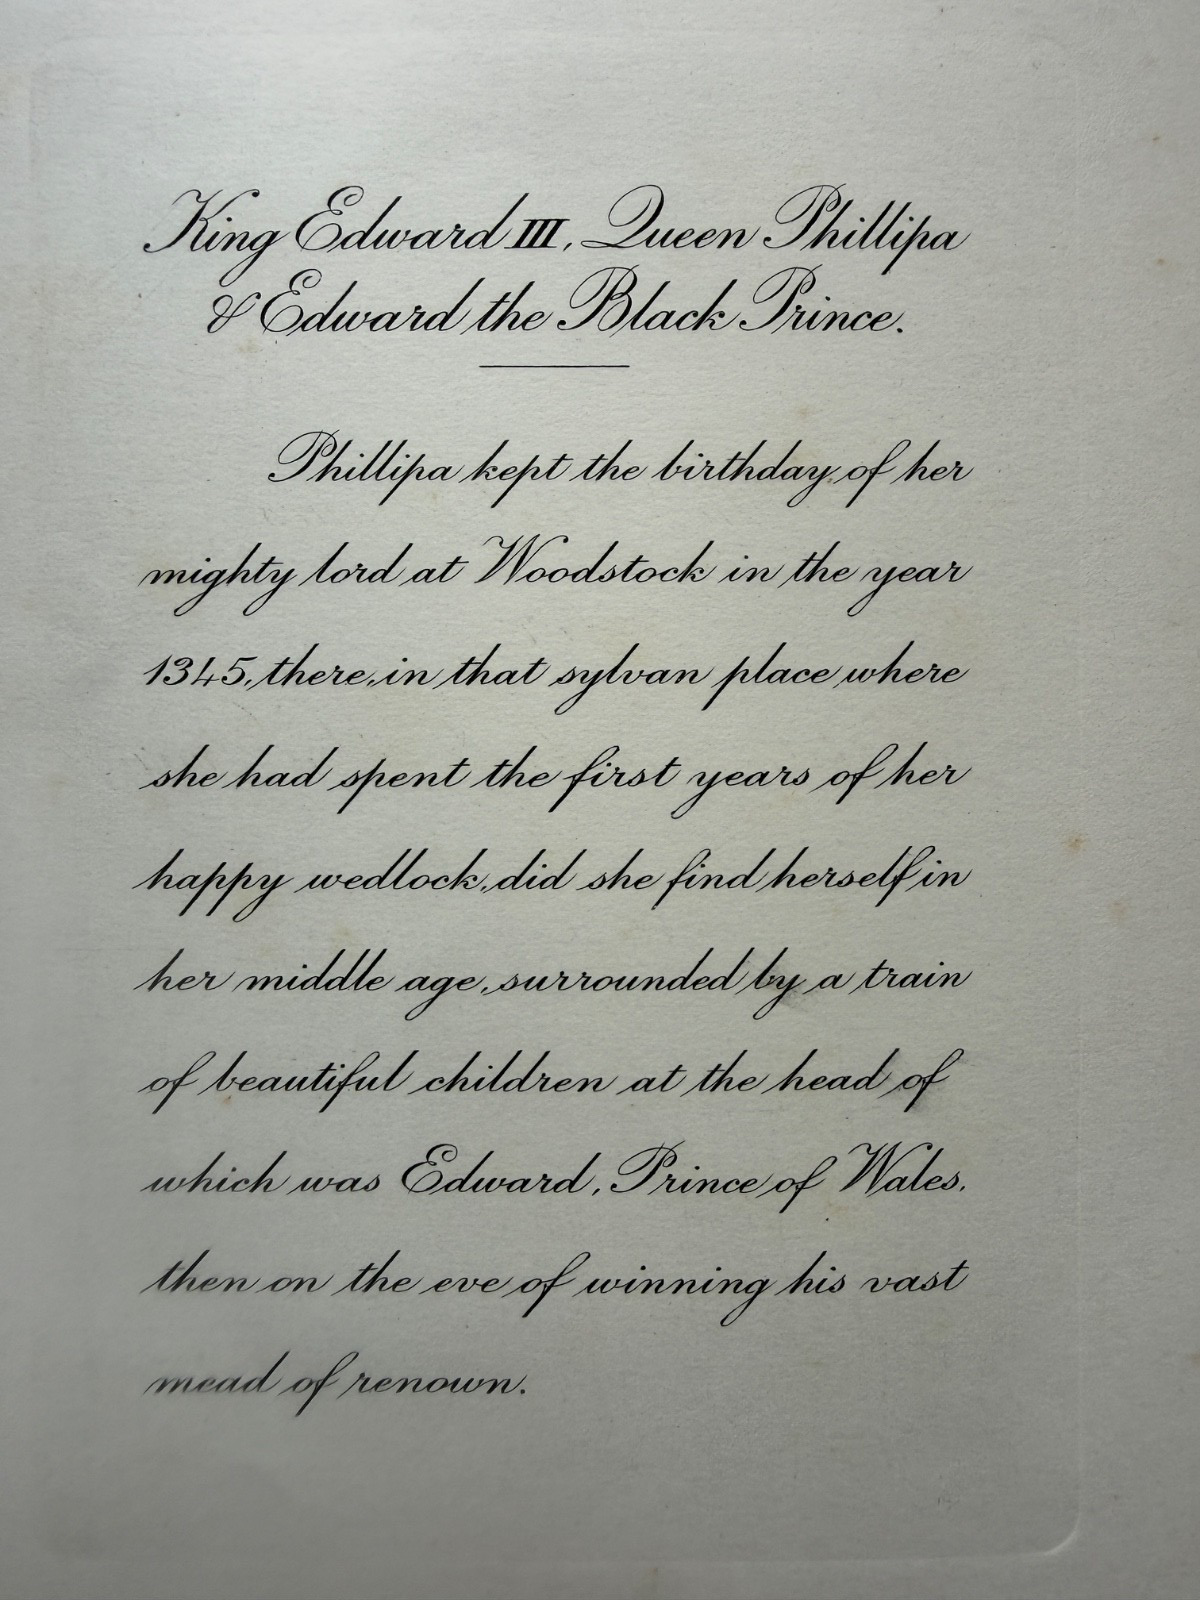 King Edward III, Queen Phillipa
& Edward the Black Prince.
Phillipa kept the birthday of her
mighty lord at Woodstock in the year
1345, there, in that sylvan place where
she had spent the first years of her
happy wedlock, did she find herself in
her middle age, surrounded by a train
of beautiful children at the head of
which was Edward, Prince of Wales,
then on the eve of winning his vast
mead of renown.